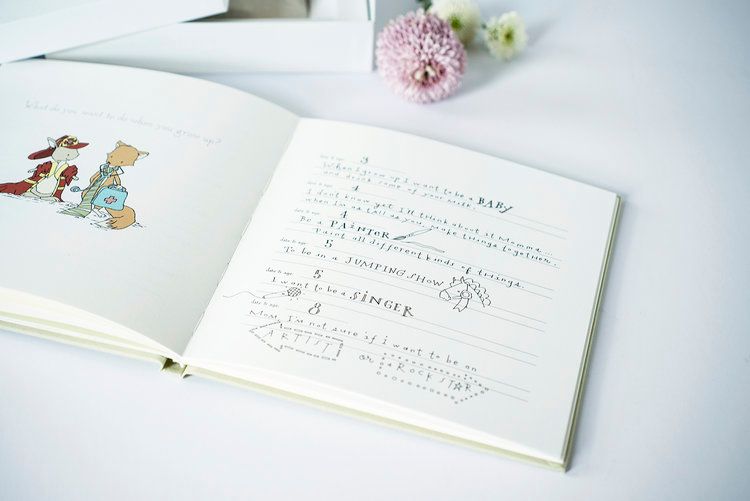 What do you want to do when you grow up?
date & age: 3
When I grow up I want to be a BABY
and drink some of your milk.
date & age: 4
I don't know yet, I'll think about it Mamma...
when I'm as tall as you, make things together.
4
Be a PAINTER
Paint all different kinds of things.
date & age: 5
To be in a JUMPING SHOW
date & age: 5
I want to be a SINGER
date & age: 8
Mom, I'm not sure if I want to be an
ARTIST or a ROCKSTAR